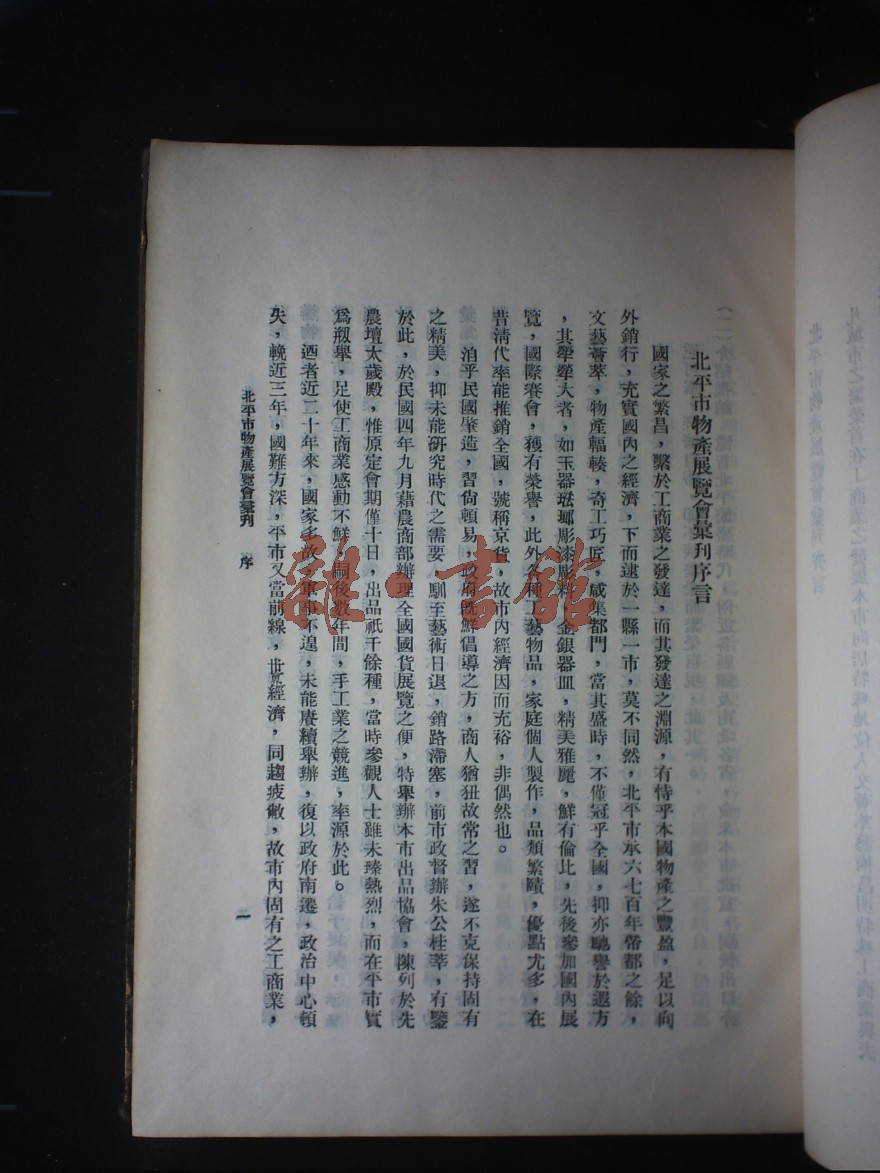 北平市物產展覽會彙刊序言
國家之繁昌，繫於工商業之發達，而其發達之淵源，有恃乎本國物產之豐盈，足以向
外銷行，充實國內之經濟，下而逮於一縣一市，莫不同然，北平市承六七百年帝都之餘，
文藝薈萃，物產輻輳，奇工巧匠，咸集都門，當其盛時，不僅冠乎全國，抑亦馳譽於遐方
，其犖犖大者，如玉器琺瑯彫漆彫料，金銀器皿，精美雅麗，鮮有倫比，先後參加國內展
覽，國際賽會，獲有榮譽，此外各種工藝物品，家庭個人製作，品類繁賾，優點尤多，在
昔清代率能推銷全國，號稱京貨，故市內經濟因而充裕，非偶然也。
洎乎民國肇造，習尙頓易，政府旣鮮倡導之方，商人猶狃故常之習，遂不克保持固有
之精美，抑未能研究時代之需要，馴至藝術日退，銷路滯塞，前市政督辦朱公桂莘，有鑒
於此，於民國四年九月藉農商部辦理全國國貨展覽之便，特舉辦本市出品協會，陳列於先
農壇太歲殿，惟原定會期僅十日，出品祇千餘種，當時參觀人士雖未臻熱烈，而在平市實
爲剏舉，足使工商業感動不鮮，嗣後數年間，手工業之競進，率源於此。
迺者近二十年來，國家多故，軍事不遑，未能賡續舉辦，復以政府南遷，政治中心頓
失，輓近三年，國難方深，平市又當前線，世界經濟，同趨疲敝，故市內固有之工商業，
北平市物產展覽會彙刊　序
一
雜·書館